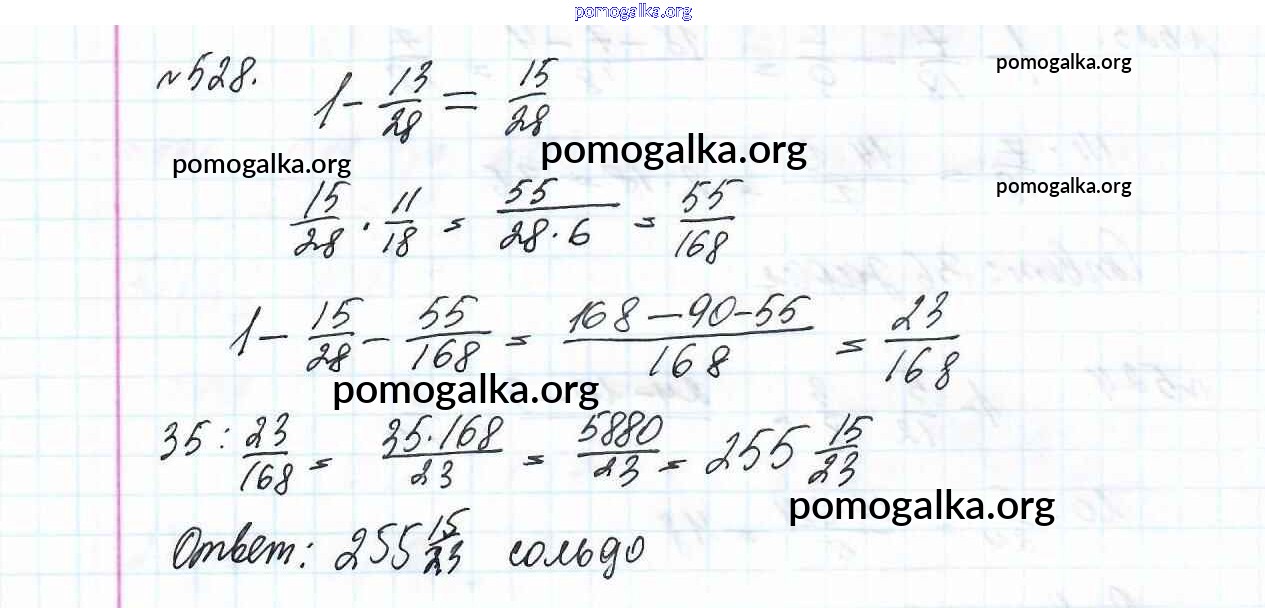 pomogalka.org
№528. 1 - 13/28 = 15/28
pomogalka.org
pomogalka.org
pomogalka.org
15/28 · 11/18 = 55/(28·6) = 55/168
pomogalka.org
1 - 15/28 - 55/168 = (168-90-55)/168 = 23/168
pomogalka.org
35 : 23/168 = (35·168)/23 = 5880/23 = 255 15/23
pomogalka.org
Ответ: 255 15/23 сольдо